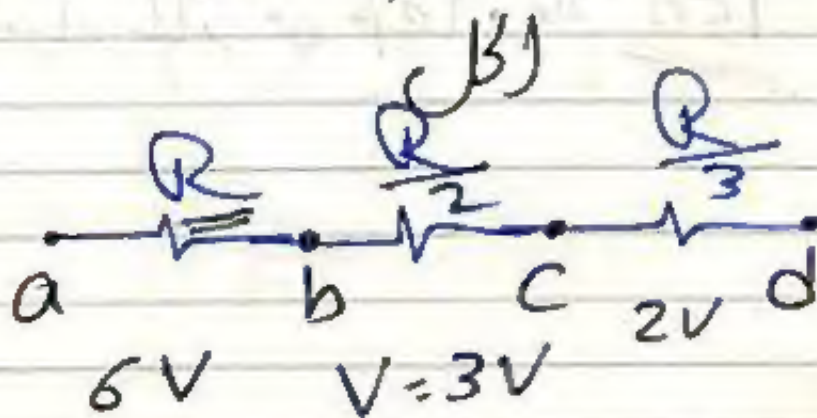 (B)
R R/2 R/3
a b c d
6V V=3V 2V